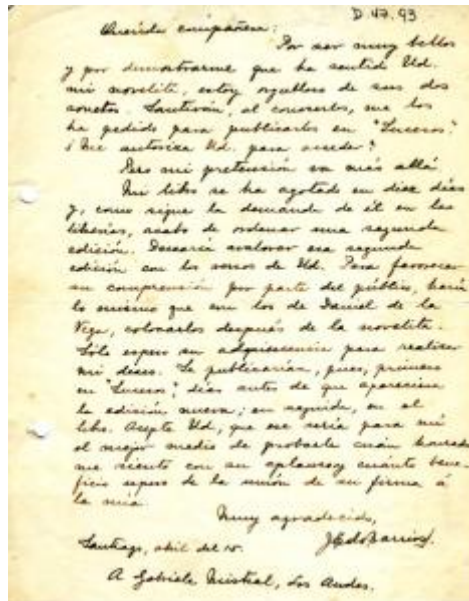 D. 47. 93
Querida compañera:
Por ser muy bellos
y por demostrarme que ha sentido Ud.
mi novelita, estoy orgulloso de sus dos
sonetos. Santiván, al conocerlos, me los
ha pedido para publicarlos en "Sucesos".
¿Me autoriza Ud. para acceder?
Pero mi pretensión va más allá.
Mi libro se ha agotado en diez días
y, como sigue la demanda de él en las
librerías, acabo de ordenar una segunda
edición. Desearía avalorar esa segunda
edición con los versos de Ud. Para favorecer
su comprensión por parte del público, haría
lo mismo que con los de Daniel de la
Vega, colocarlos después de la novelita.
Sólo espero su adquiescencia para realizar
mi deseo. Se publicarían, pues, primero
en "Sucesos", días antes de que apareciera
la edición nueva; en seguida, en el
libro. Acepte Ud, que ese sería para mí
el mejor medio de probarle cuán honrado
me siento con su aplauso y cuánto bene-
ficio espero de la unión de su firma á
la mía.
Muy agradecido,
Santiago, abril del 15. EdoBarrios
A Gabriela Mistral, Los Andes.